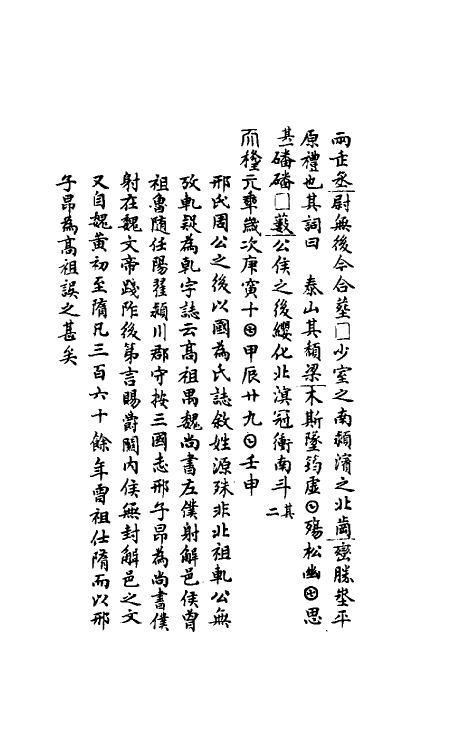 兩丘丞尉無後今合塟囗少室之南潁濱之北崗壐勝塋平
原禮也其詞曰　泰山其頹梁木斯墜筠虛㊐殤松幽㊊思
其一磻磻囗藪公侯之後纓化北溟冠衝南斗其二
而㰌元乘歲次庚寅十㊊甲辰廿九㊐壬申
邢氏周公之後以國為氏誌敘姓源殊非北祖軋公無
攷軋疑為乹字誌云高祖禺魏尚書左僕射解邑侯曾
祖魯隨任陽翟潁川郡守按三國志邢子昂為尚書僕
射在魏文帝踐阼後第言賜爵關內侯無封解邑之文
又自魏黃初至隋凡三百六十餘年曾祖仕隋而以邢
子昂為高祖誤之甚矣